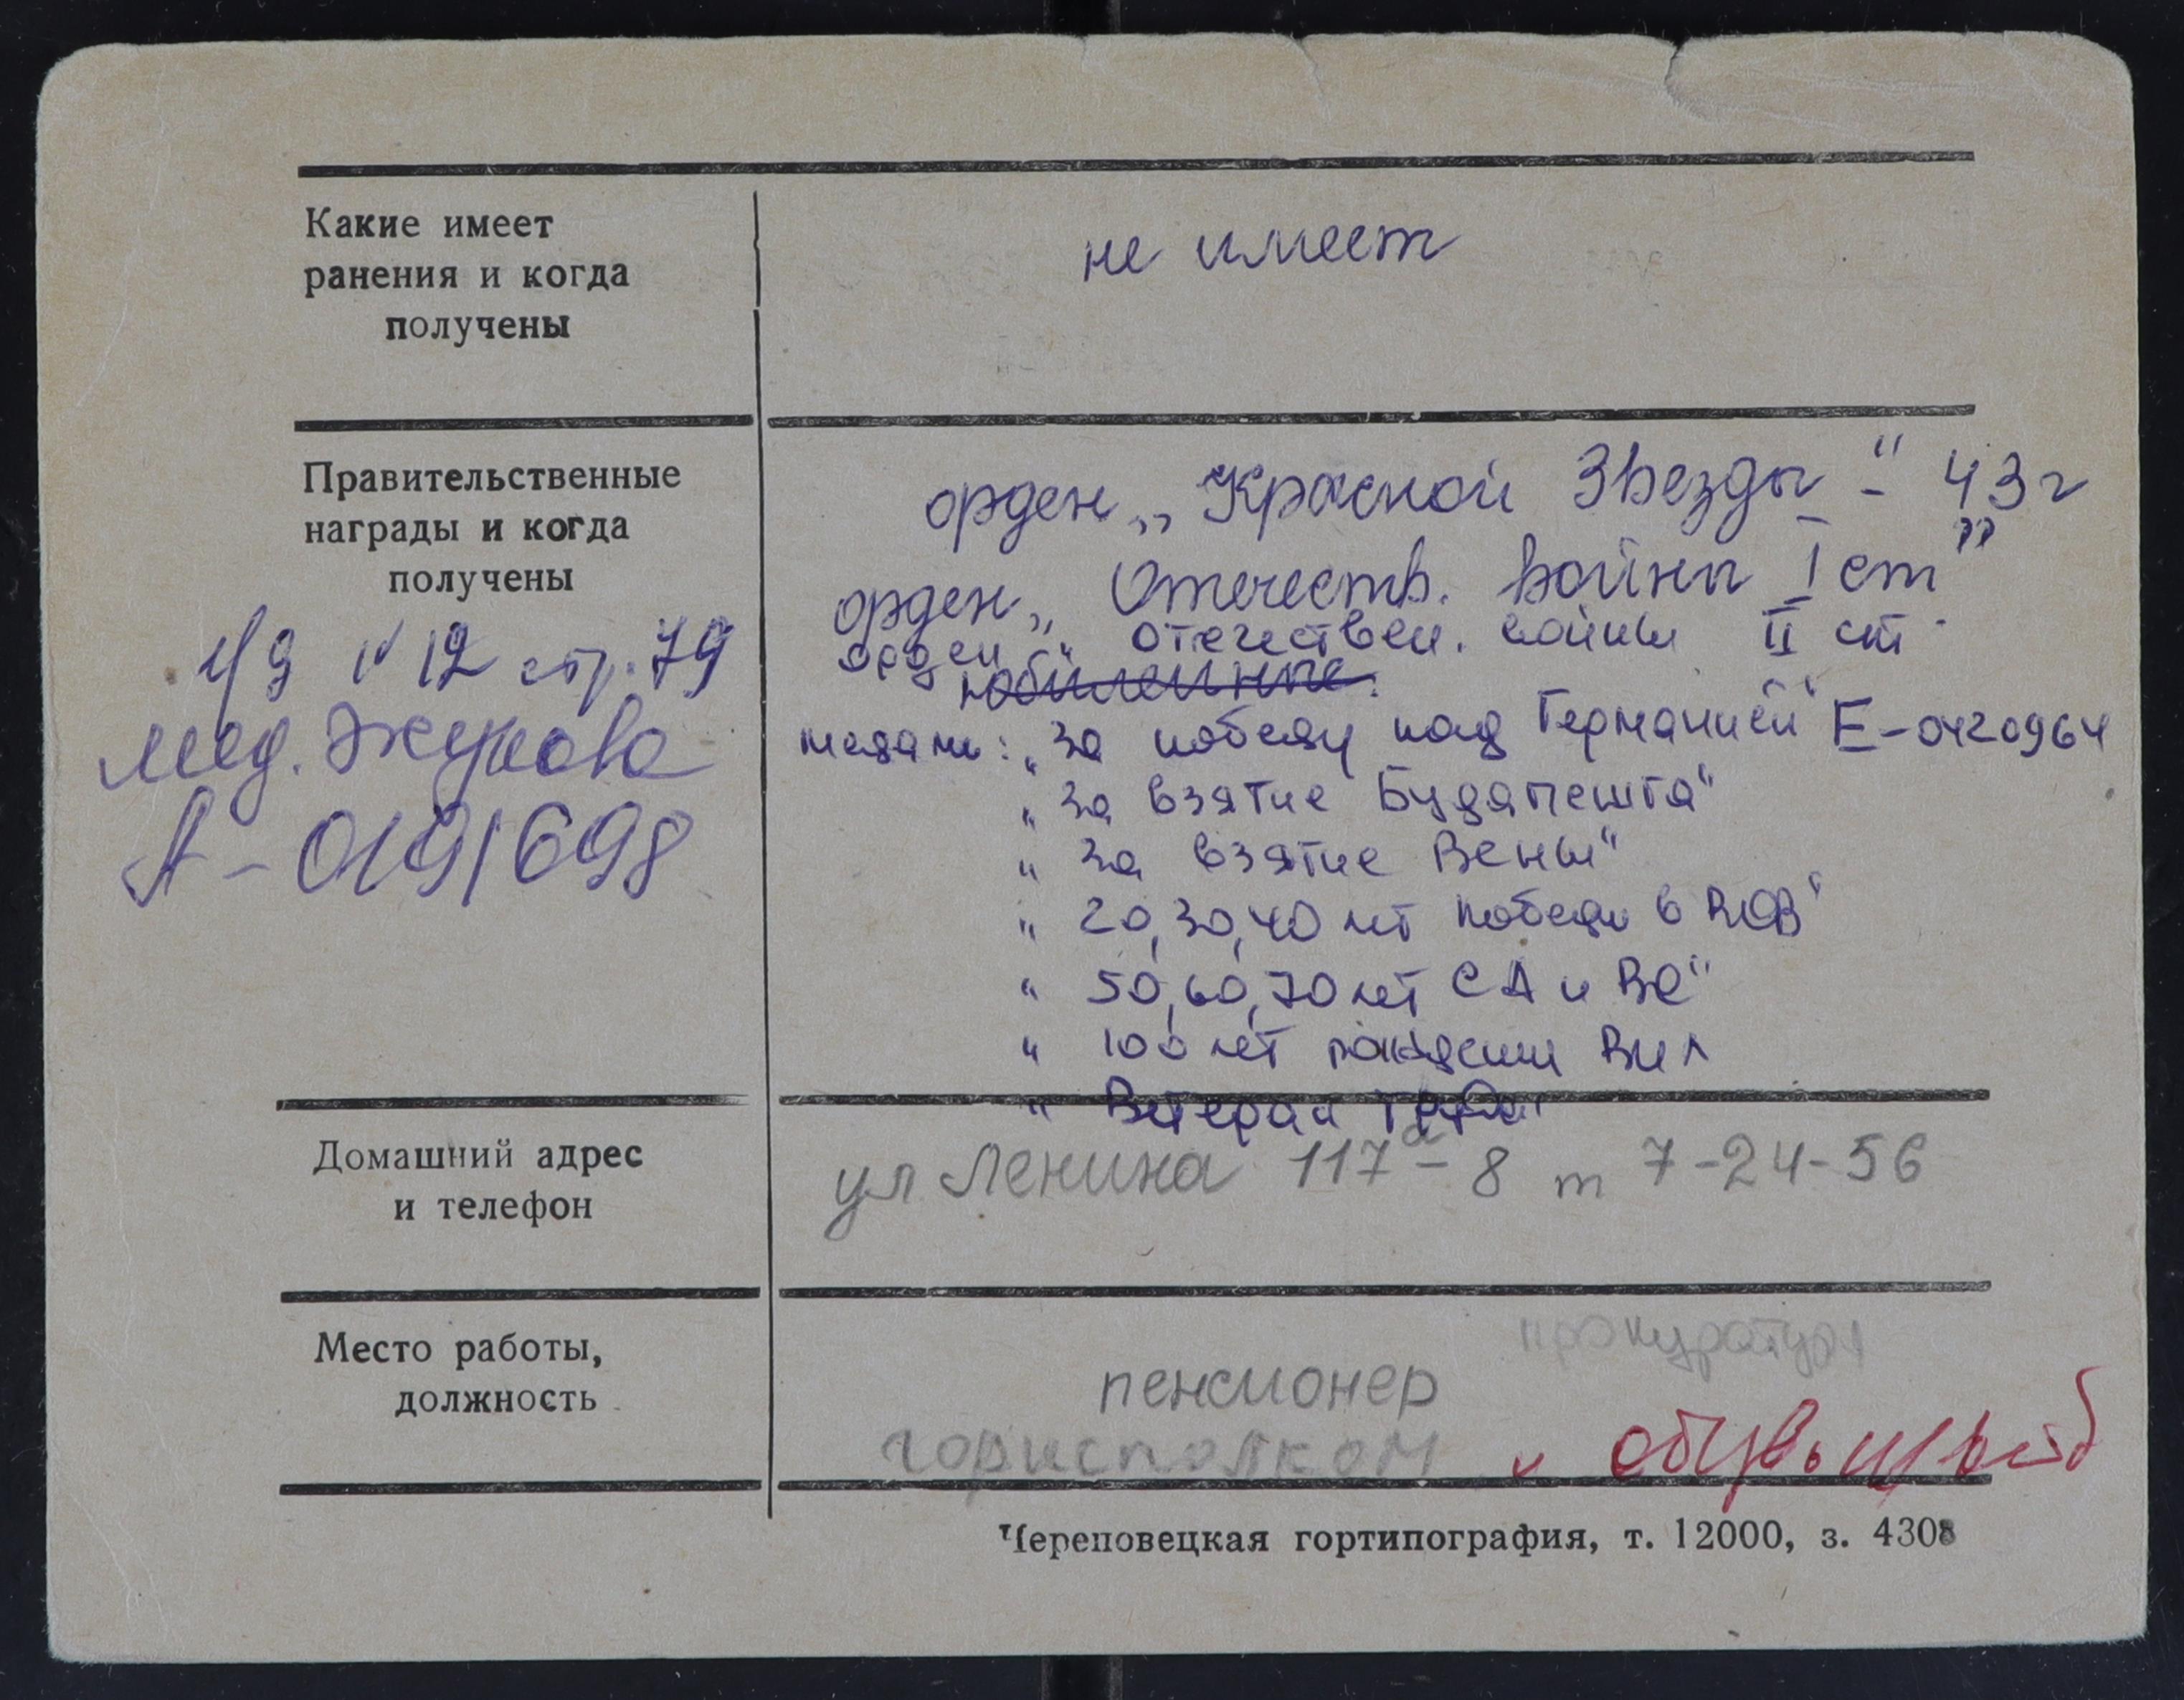 Какие имеет
ранения и когда
получены
не имеет
Правительственные
награды и когда
получены
орден „Красной Звезды" - 43г
орден „Отечеств. войны I ст"
орден „Отечествен. войны II ст.
юбилейные:
медали: „За победу над Германией" Е-0420964
„За взятие Будапешта"
„За взятие Вены"
" 20, 30, 40 лет победы в ВОВ"
" 50, 60, 70 лет СА и ВС"
" 100 лет рождения ВИЛ
" Ветеран труда"
л/д № 12 стр. 79
мед. Жукова
А-0191698
Домашний адрес
и телефон
ул Ленина 117а - 8 т 7-24-56
Место работы,
должность
прокуратура
пенсионер
горисполком
Череповецкая гортипография, т. 12000, з. 4308